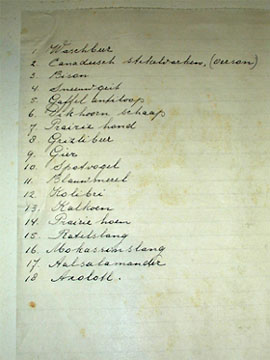 1. Waschbeer
2. Canadeesch stekelvarken, (verson)
3. Bison
4. Sneeuwgeit
5. Gaffel antiloop
6. Dikhoorn schaap
7. Prairie hond
8. Grizlibeer
9. Gier
10. Spotvogel
11. Blauwmerel
12. Kolibri
13. Kalkoen
14. Prairie hoen
15. Ratelslang
16. Mokassinslang
17. Aalsalamander
18 Axolotl.